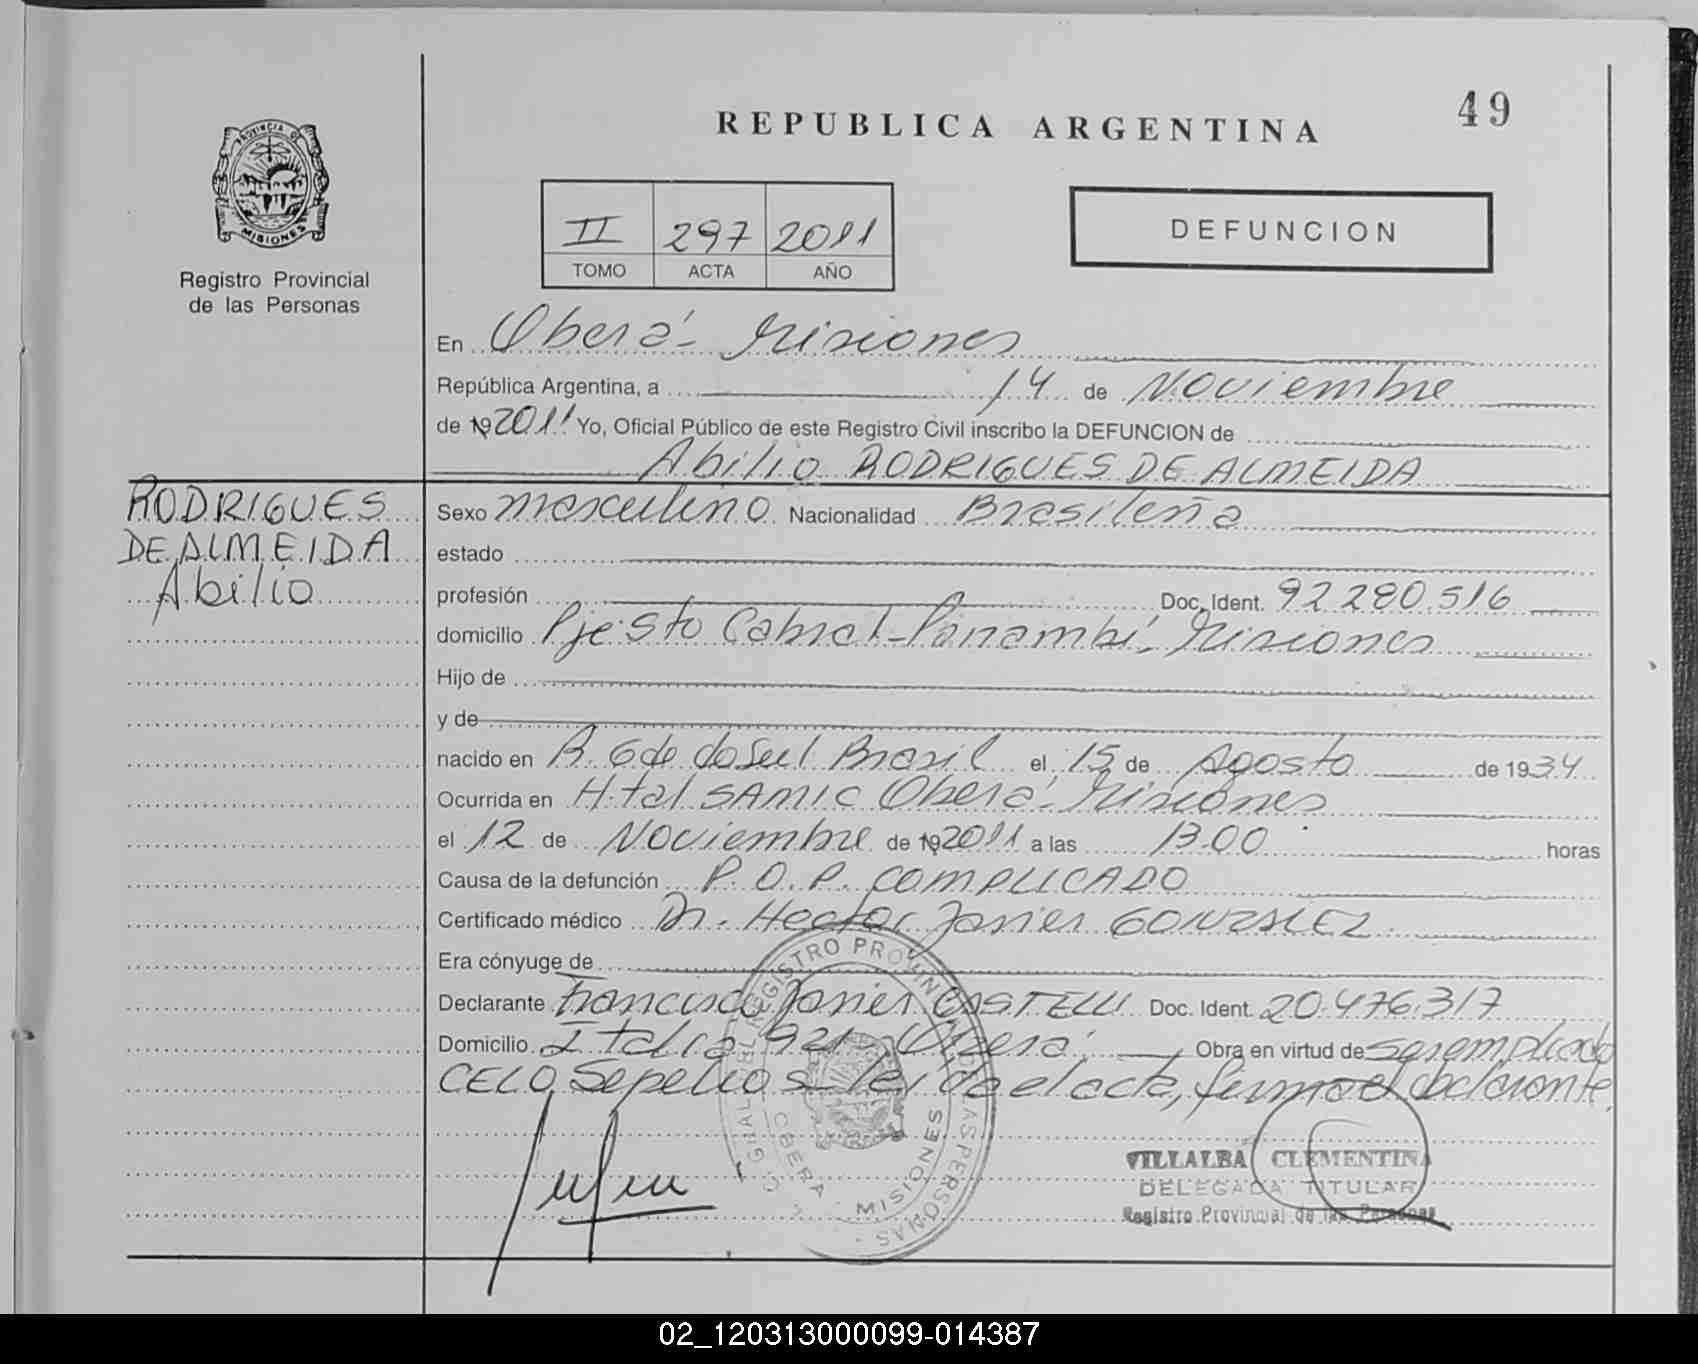 49
REPUBLICA ARGENTINA
PROVINCIA DE
MISIONES
Registro Provincial
de las Personas
II 297 2011
TOMO ACTA AÑO
DEFUNCION
En Oberá - Misiones
República Argentina, a 14 de Noviembre
de 19 2011 Yo, Oficial Público de este Registro Civil inscribo la DEFUNCION de
Abilio RODRIGUES DE ALMEIDA
RODRIGUES
DE ALMEIDA
Abilio
Sexo masculino Nacionalidad Brasileña
estado
profesión Doc. Ident. 92.280.516
domicilio Pje Sto Cabral - Panambí - Misiones
Hijo de
y de
nacido en R. Gde do Sul Brasil el 15 de Agosto de 1934
Ocurrida en H.tal SAMIC Oberá - Misiones
el 12 de Noviembre de 19 2011 a las 13.00 horas
Causa de la defunción P.O.P. COMPLICADO
Certificado médico Dr. Hector Javier GONZALEZ
Era cónyuge de
Declarante Francisco Javier CASTELLI Doc. Ident. 20.476.317
Domicilio Italia 921 Oberá Obra en virtud de ser empleado
CELO Sepelios - leída el acta, firma el declarante.
REGISTRO PROVINCIAL DE LAS PERSONAS
OBERA MISIONES
VILLALBA CLEMENTINA
DELEGADA TITULAR
Registro Provincial de las Personas
02_120313000099-014387